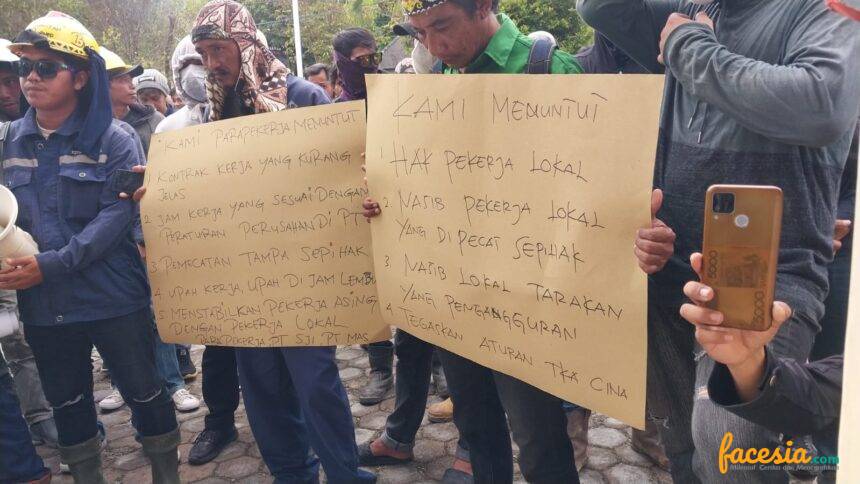 KAMI PARAPEKERJA MENUNTUT
1 KONTRAK KERJA YANG KURANG
JELAS
2. JAM KERJA YANG SESUAI DENGAN
PERATURAN PERUSAHAN DI PT
3 PEMECATAN TAMPA SEPIHAK
4 UPAH KERJA, UPAH DI JAM LEMBU
5 MENSTABILKAN PEKERJA ASING
DENGAN PEKERJA LOKAL
PARAPEKERJA PT SJI PT MAS
KAMI MENUNTUT
1 HAK PEKERJA LOKAL
2. NASIB PEKERJA LOKAL
YANG DI PECAT SEPIHAK
3. NASIB LOKAL TARAKAN
YANG PENGANGGURAN
4. TEGASKAN ATURAN TKA CINA
facesia.com
Milenial Cerdas dan Mencerahkan